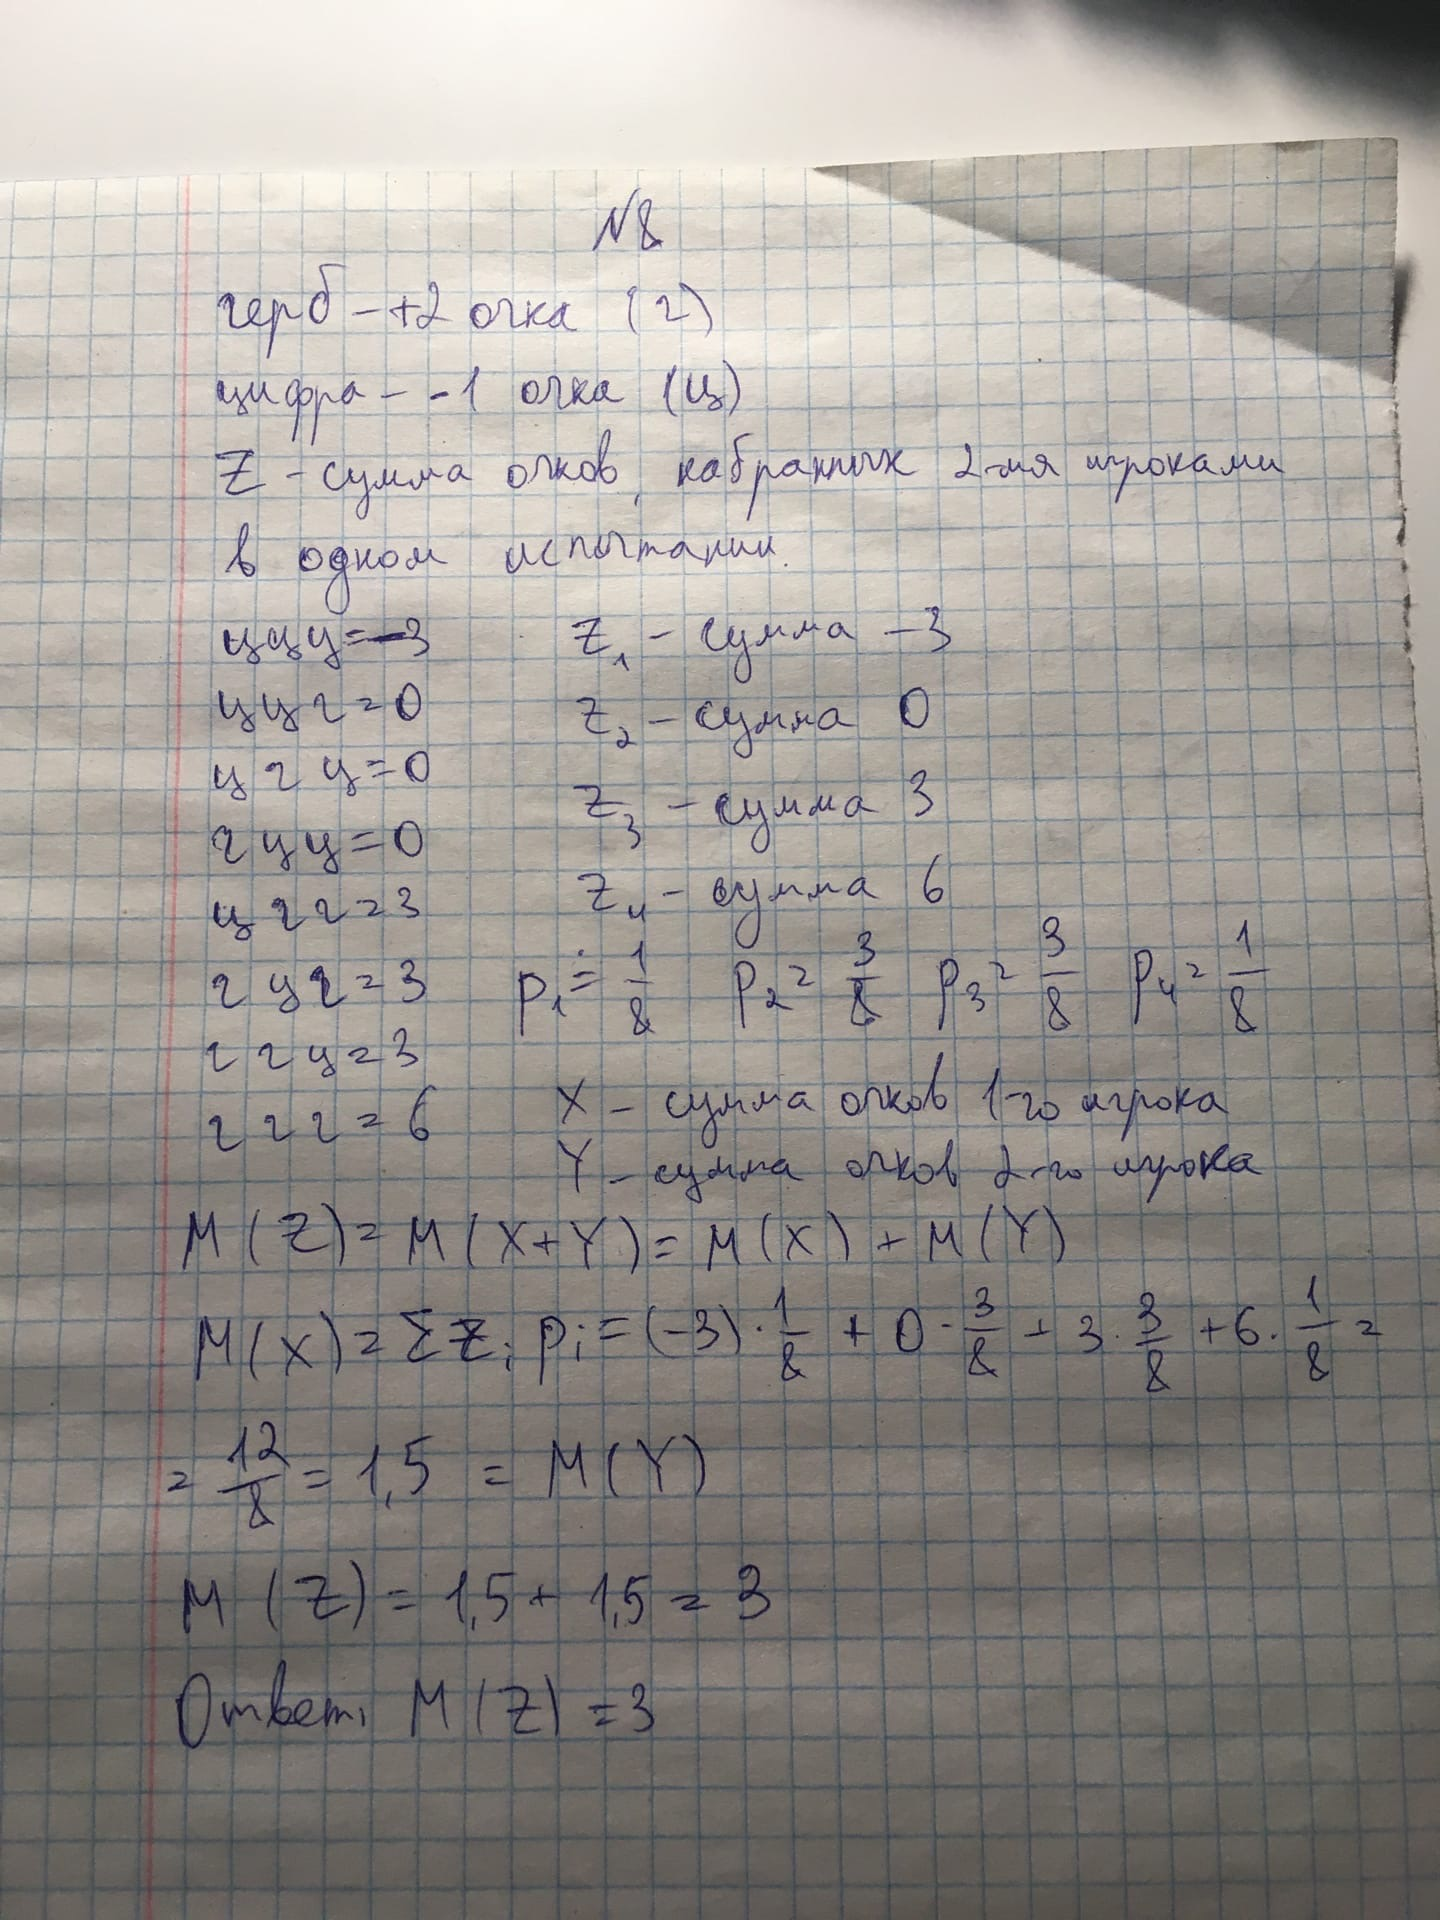 N8
герб - +2 очка (г)
цифра - -1 очка (ц)
Z - сумма очков, набранных 2-мя игроками
в одном испытании.
ццц=-3 Z₁ - сумма -3
ццг=0 Z₂ - сумма 0
цгц=0
гцц=0 Z₃ - сумма 3
цгг=3 Z₄ - сумма 6
гцг=3 p₁=1/8 p₂=3/8 p₃=3/8 p₄=1/8
ггц=3
ггг=6 X - сумма очков 1-го игрока
Y - сумма очков 2-го игрока
M(Z)=M(X+Y)=M(X)+M(Y)
M(X)=Σzᵢpᵢ=(-3)·1/8+0·3/8+3·3/8+6·1/8=
=12/8=1,5=M(Y)
M(Z)=1,5+1,5=3
Ответ: M(Z)=3